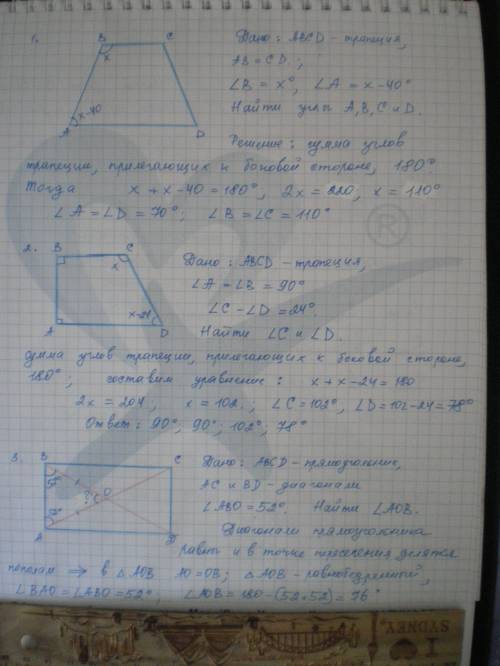 1.
B C
x
x-40
A D
Дано: ABCD - трапеция,
AB = CD.;
∠B = x°, ∠A = x-40°
Найти углы A, B, C и D.
Решение: сумма углов
трапеции, прилегающих к боковой стороне, 180°.
Тогда x + x - 40 = 180°, 2x = 220, x = 110°
∠A = ∠D = 70°; ∠B = ∠C = 110°
2.
B C
x
x-24
A D
Дано: ABCD - трапеция,
∠A = ∠B = 90°
∠C - ∠D = 24°.
Найти ∠C и ∠D.
сумма углов трапеции, прилегающих к боковой стороне,
180°; составим уравнение: x + x - 24 = 180
2x = 204, x = 102. ∠C = 102°, ∠D = 102 - 24 = 78°
Ответ: 90°; 90°; 102°; 78°
3.
B C
52°
? O
A D
Дано: ABCD - прямоугольник,
AC и BD - диагонали
∠ABO = 52°. Найти ∠AOB.
Диагонали прямоугольника
равны и в точке пересечения делятся
пополам ⇒ в △AOB AO = OB; △AOB - равнобедренный,
∠BAO = ∠ABO = 52°, ∠AOB = 180 - (52+52) = 76°
SYDNEY